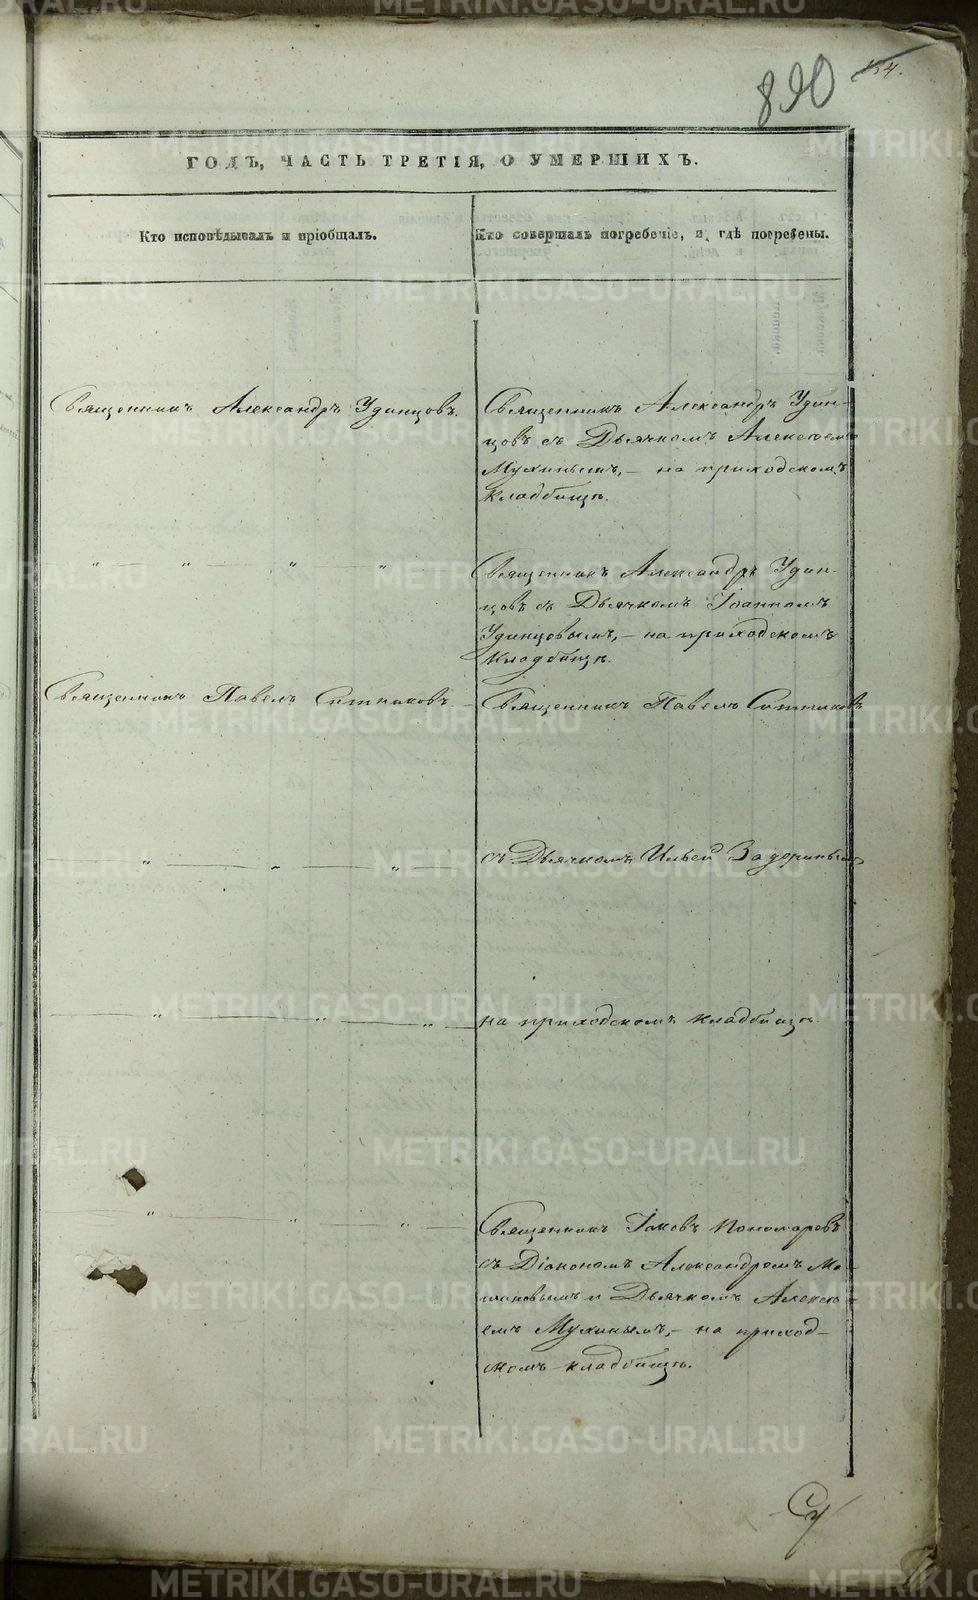 890
154.
ГОДЪ, ЧАСТЬ ТРЕТІЯ, О УМЕРШИХЪ.
Кто исповѣдывалъ и пріобщалъ.
Кто совершалъ погребеніе, и гдѣ погребены.
Священникъ Александръ Удинцовъ.
Священникъ Александръ Удин-
цовъ съ Дьячкомъ Алексѣемъ
Мухинымъ, – на приходскомъ
кладбищѣ.
" — " — " — "
Священникъ Александръ Удин-
цовъ съ Дьячкомъ Іоанномъ
Удинцовымъ, – на приходскомъ
кладбищѣ.
Священникъ Павелъ Ситниковъ. –
Священникъ Павелъ Ситниковъ
" — " — " —
съ Дьячкомъ Ильей Задоринымъ
" — " — " —
на приходскомъ кладбищѣ.
" — " — " —
Священникъ Іаковъ Пономаревъ
съ Діакономъ Александромъ
и Дьячкомъ Алексѣ-
емъ Мухинымъ, – на приход-
скомъ кладбищѣ.
METRIKI.GASO-URAL.RU